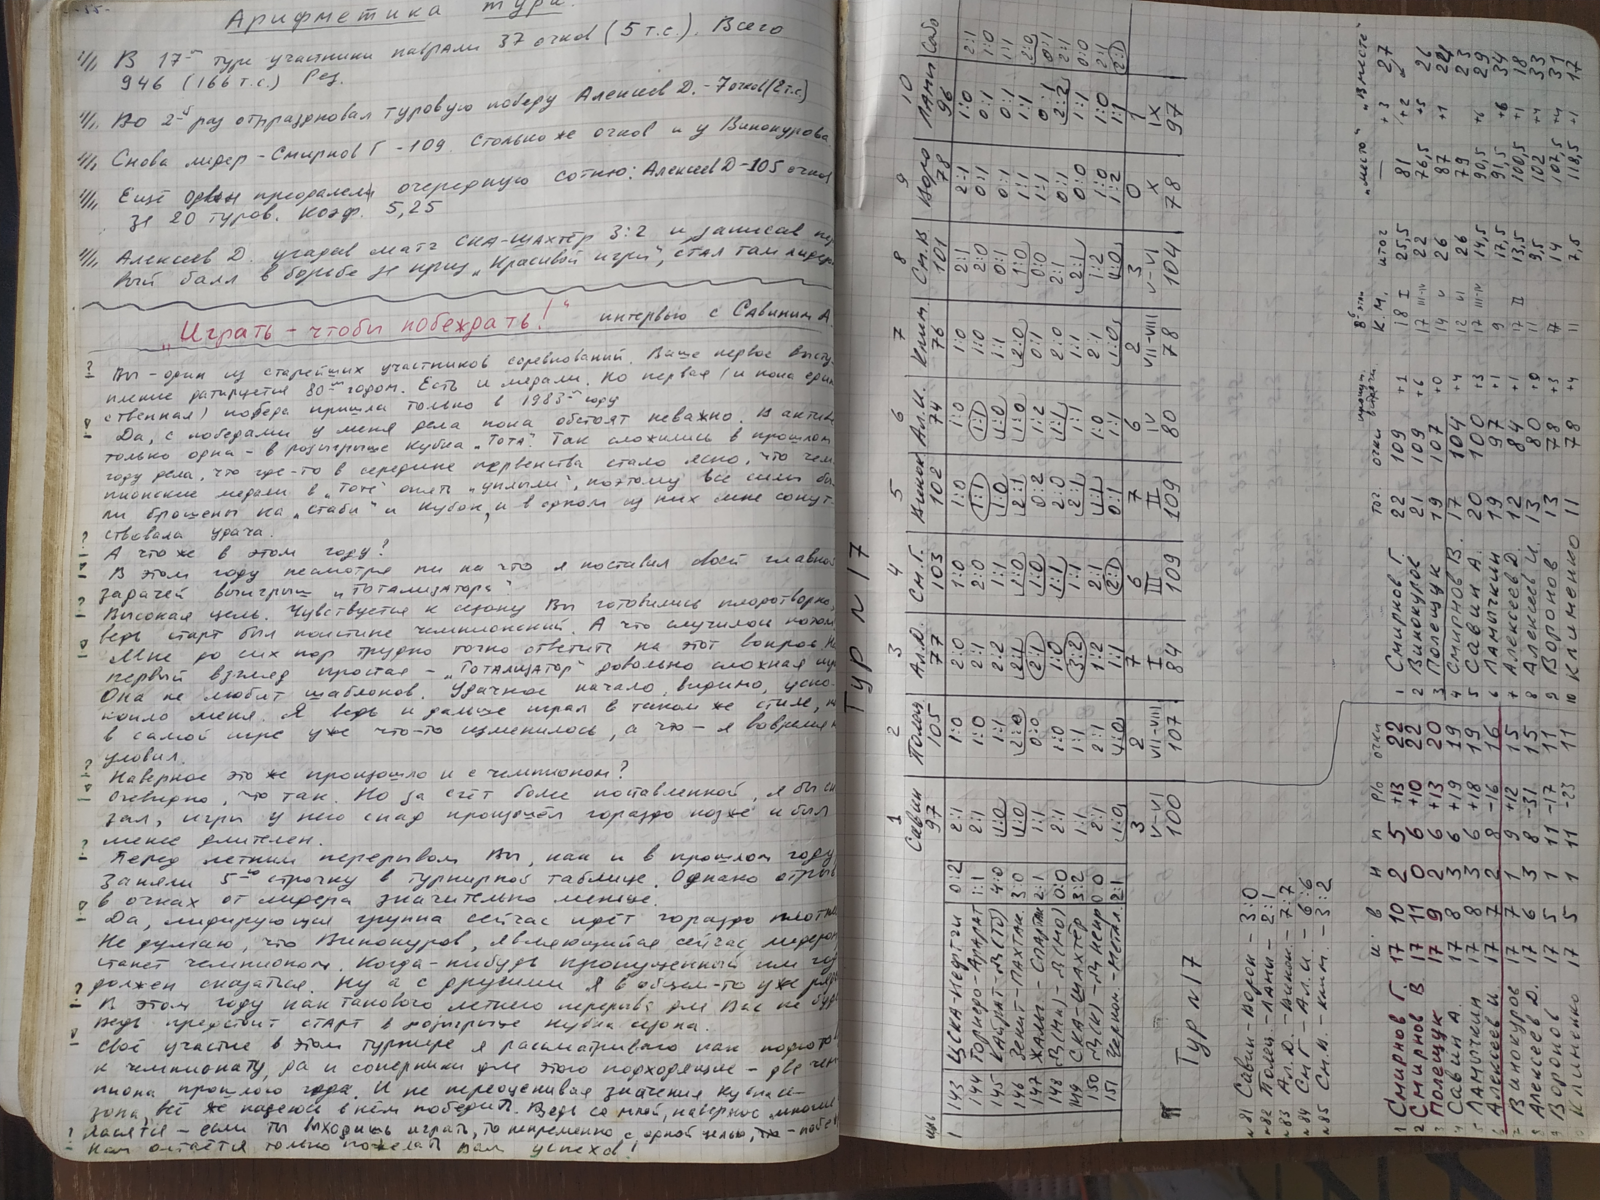 Арифметика тура.
В 17-м туре участники набрали 37 очков (5 т.с.). Всего
946 (166 т.с.) Рез.
Во 2-й раз отпраздновал туровую победу Алексеев Д. - 7 очков (2 т.с)
Снова лидер - Смирнов Г - 109. Столько же очков и у Винокурова.
Ещё один преодолели очередную сотню: Алексеев Д - 105 очков
за 20 туров. Коэф. 5,25
Алексеев Д. угадав матч СКА-Шахтёр 3:2 и записав пер
вый балл в борьбе за приз „Красивой игры", стал там лидером
„Играть - чтобы побеждать!" интервью с Савиным А.
Вы - один из старейших участников соревнований. Ваше первое высту
пление датируется 80-м годом. Есть и медали. Но первая (и пока един
ственная) победа пришла только в 1983-м году
Да, с победами у меня дела пока обстоят неважно. В активе
только одна - в розыгрыше Кубка „Тота". Так сложились в прошлом
году дела, что где-то в середине первенства стало ясно, что чем
пионские медали в „Тоте" опять „уплыли", поэтому все силы бы
ли брошены на „Стаби" и Кубок, и в одном из них мне сопут
ствовала удача.
А что же в этом году?
В этом году несмотря ни на что я поставил своей главной
задачей выигрыш „Тотализатора"
Высокая цель. Чувствуется к сезону Вы готовились плодотворно,
ведь старт был поистине чемпионский. А что случилось потом
Мне до сих пор трудно точно ответить на этот вопрос. На
первый взгляд простая - „Тотализатор" довольно сложная игра
Она не любит шаблонов. Удачное начало, видимо, успо-
коило меня. Я ведь и дальше играл в таком же стиле, но
в самой игре уже что-то изменилось, а что - я вовремя не
уловил.
Наверное это же произошло и с чемпионом?
Очевидно, что так. Но за счёт более поставленной, я бы ска
зал, игры у него спад прошёл гораздо позже и был
менее длителен.
Перед летним перерывом Вы, как и в прошлом году
заняли 5-ю строчку в турнирной таблице. Однако отрыв
в очках от лидера значительно меньше.
Да, лидирующая группа сейчас идёт гораздо плотнее
Не думаю, что Винокуров, являющийся сейчас лидером
станет чемпионом. Когда-нибудь пропущенный им тур
должен сказаться. Ну а с другими я в общем-то уже рядом
В этом году как такового летнего перерыва для Вас не будет
Ведь предстоит старт в розыгрыше Кубка сезона.
Своё участие в этом турнире я рассматриваю как подготов
к чемпионату, да и соперники для этого подходящие - две чем
пиона прошлого года. И не переоценивая значения Кубка се-
зона, всё же надеюсь в нём победить. Ведь со мной, наверное, многие
согласятся - если ты выходишь играть, то непременно с одной целью, - побе
Нам остаётся только пожелать Вам успехов!
Тур №17
1 2 3 4 5 6 7 8 9 10
Савин Полещ Ал.Д. См.Г. Винок Ал.И. Клим. См.В Воро Ламы Собо
97 105 77 103 102 74 76 101 78 96
143 ЦСКА-Нефтчи 0:2 2:1 1:0 2:0 1:0 1:0 1:0 1:0 2:1 2:1 1:0 2:1
144 Торпедо-Арарат 1:1 2:1 1:0 2:1 2:0 1:1 1:1 1:0 2:0 0:1 0:1 1:0
145 Кайрат-Д(Тб) 4:0 1:0 1:1 2:2 1:1 1:0 1:0 1:1 0:1 0:1 0:1 1:1
146 Зенит-Пахтак. 3:0 1:0 2:0 2:1 1:0 2:1 1:0 2:0 1:0 1:1 1:1 2:0
147 Жальг.-Спартак 2:1 1:1 0:0 2:1 1:0 0:2 1:2 0:1 0:0 1:1 0:1 0:1
148 Д(Мн)-Д(Мо) 0:0 2:1 1:0 1:0 1:1 2:0 1:1 2:0 2:1 0:1 2:2 2:1
149 СКА-Шахтёр 3:2 1:1 1:1 3:2 1:1 2:1 1:1 1:1 2:1 0:0 1:1 0:0
150 Д(К)-Днепр 0:0 2:1 2:1 1:2 2:1 1:1 1:0 2:1 1:2 1:0 1:0 2:1
151 Черном.-Метал. 2:1 1:0 4:0 1:1 2:1 0:1 1:1 1:0 4:0 1:2 1:1 2:1
3 2 7 6 7 6 2 3 0 1
V-VI VII-VIII I III II IV VII-VIII V-VI X IX
100 107 84 109 109 80 78 104 78 97
Тур №17
№81 Савин - Ворон - 3:0
№82 Полещ - Ламы - 2:1
№83 Ал.Д. - Винок. - 7:7
№84 См Г - Ал.И. - 6:6
№85 См.В. - Клим. - 3:2
и. в н п р/о очки
1 Смирнов Г 17 10 2 5 +13 22
2 Смирнов В 17 11 0 6 +10 22
3 Полещук 17 9 2 6 +13 20
4 Савин А. 17 8 3 6 +19 19
5 Ламычкин 17 8 3 6 +18 19
6 Алексеев И. 17 7 2 8 -16 16
7 Винокуров 17 7 1 9 +12 15
8 Алексеев Д. 17 6 3 8 -31 15
9 Воронов 17 5 1 11 -17 11
10 Клименко 17 5 1 11 -23 11
тог очки К.М. итог „место" „Вместе"
1 Смирнов Г. 22 109 +1 18 I 25,5 — +3 27
2 Винокуров 21 109 +6 17 III-IV 22 81 +2
3 Полещук 19 107 +0 14 V 26 76,5 +5 26
4 Смирнов В. 17 104 +4 12 VI 26 87 +1 24
5 Савин А. 20 100 +3 17 III-IV 14,5 79 23
6 Ламычкин 19 97 +1 9 17,5 90,5 +6 29
7 Алексеев Д. 12 84 +1 17 II 13,5 91,5 +6 34
8 Алексеев И. 13 80 +0 11 9,5 100,5 +1 18
9 Воронов 13 78 +3 7 14 102 +4 33
10 Клименко 11 78 +4 11 7,5 107,5 +4 31
118,5 +1 17